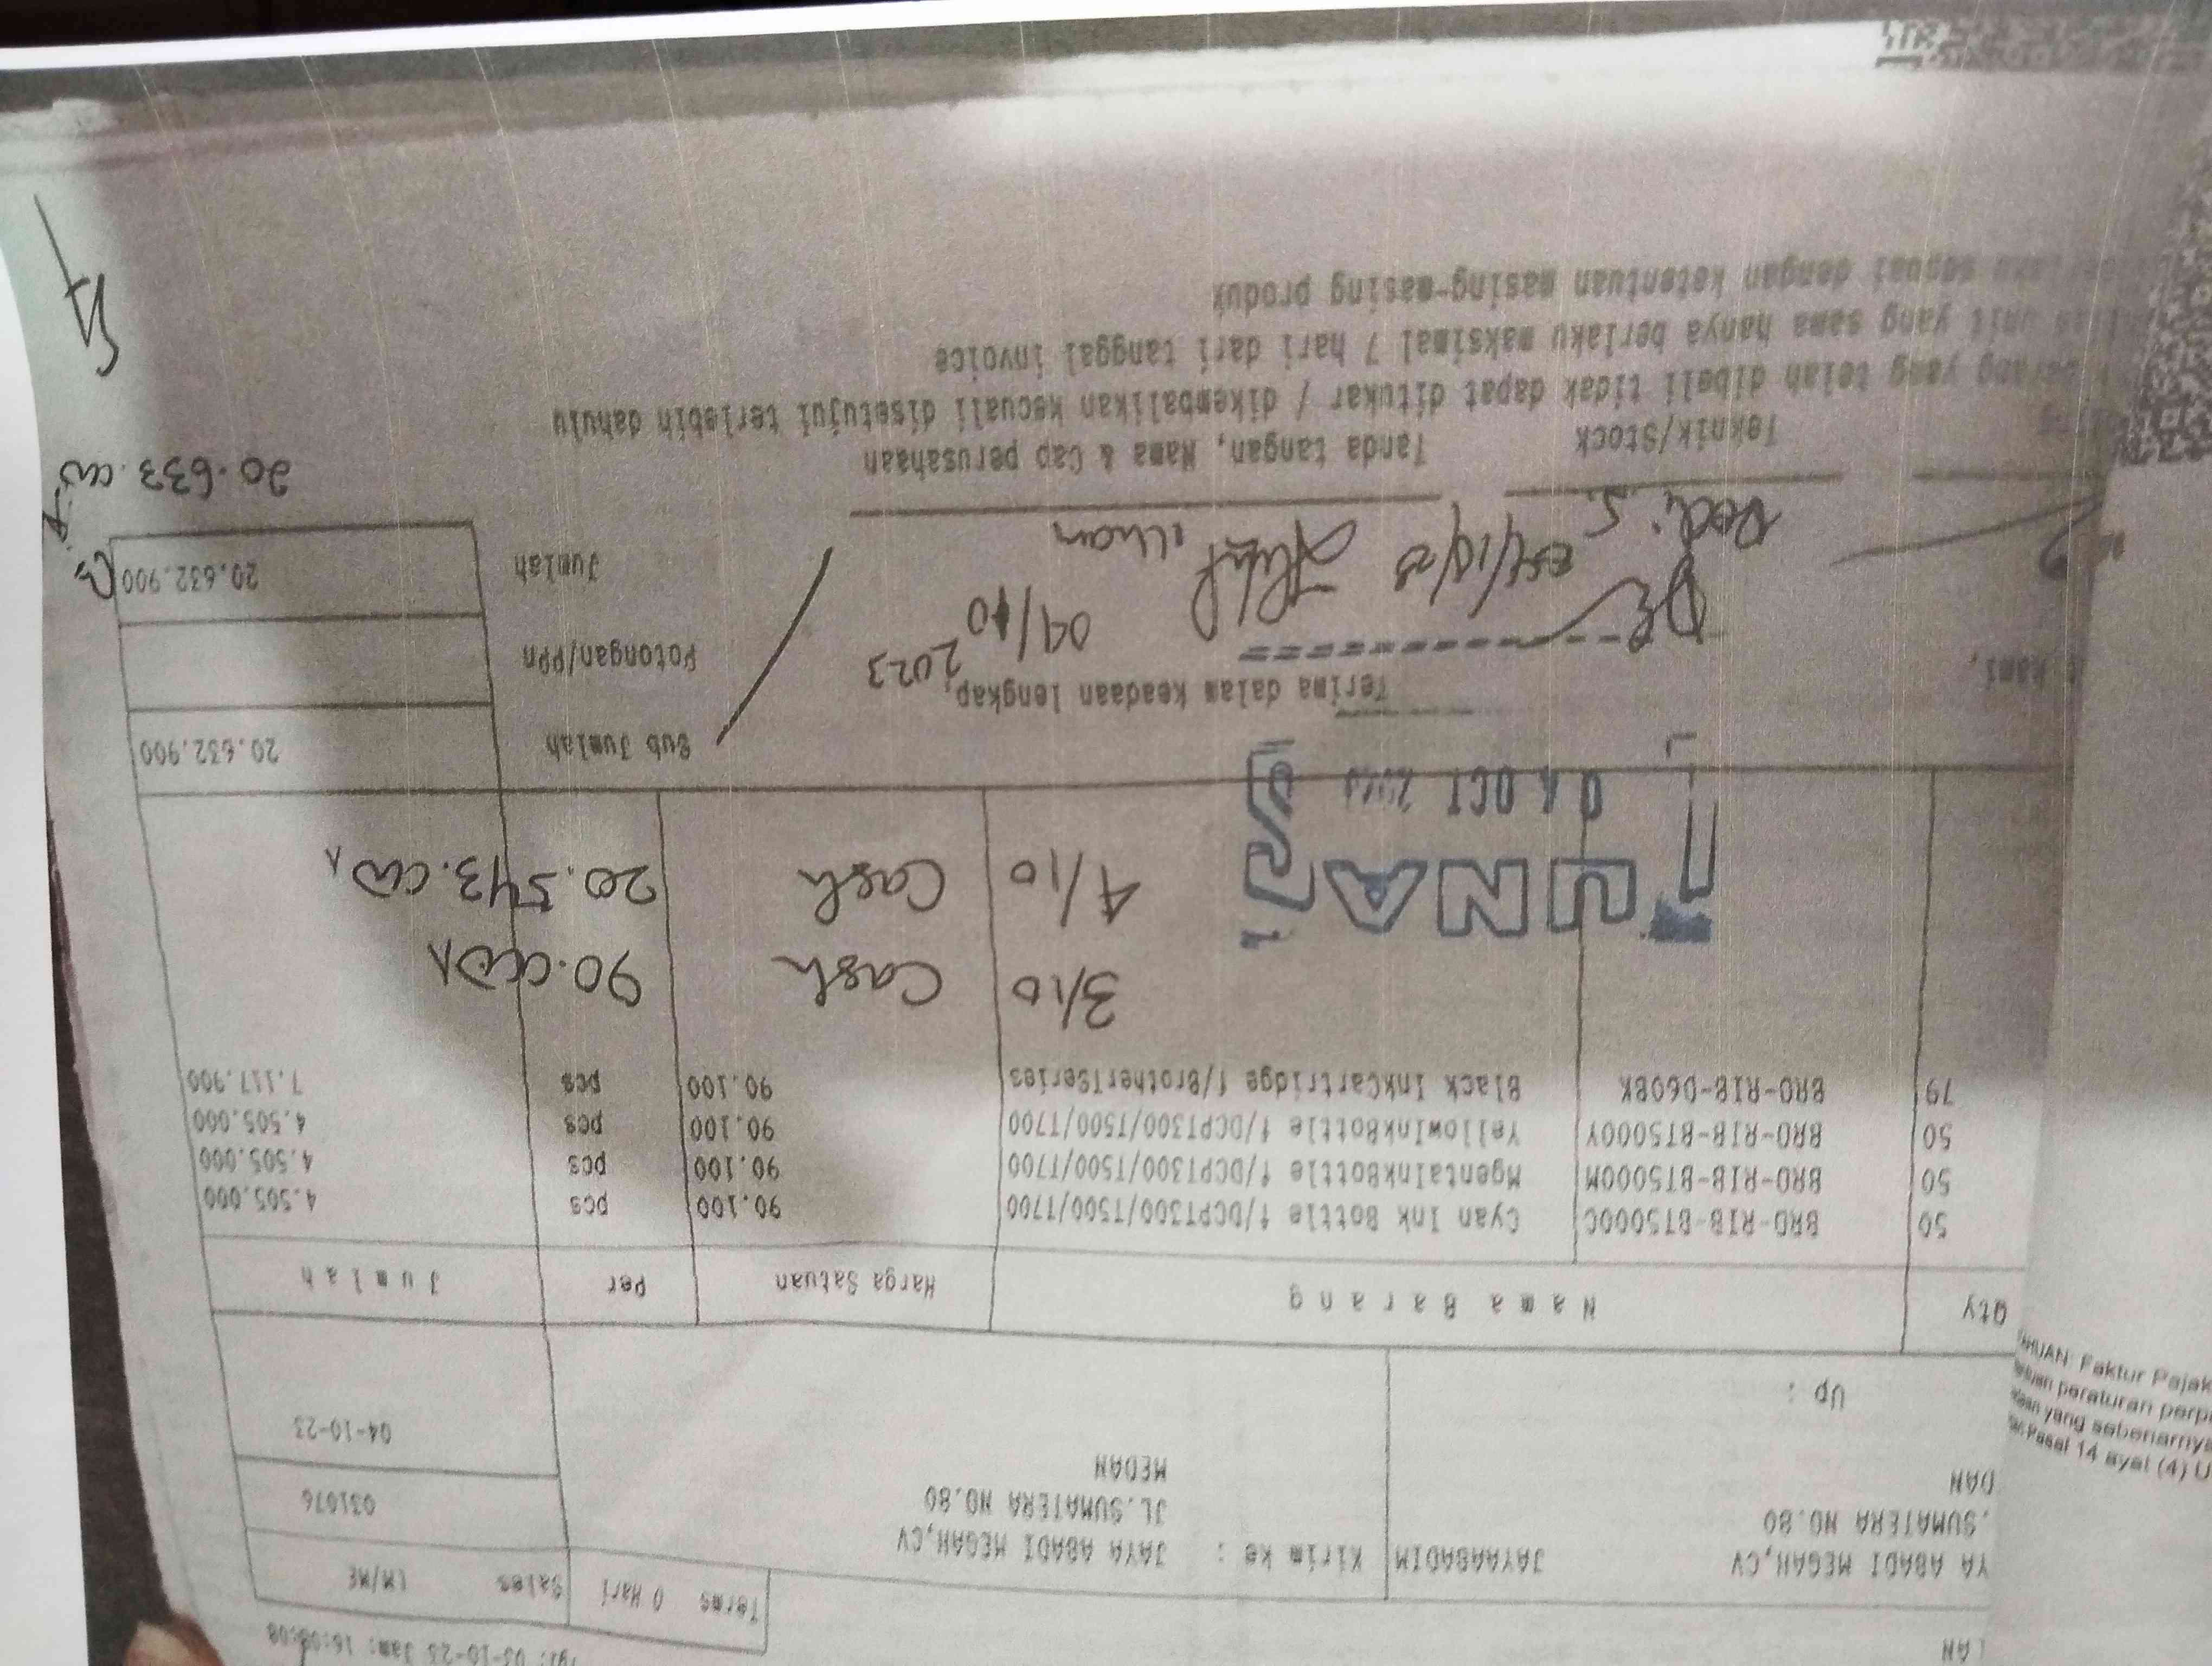 LAN
Tgl: 03-10-23 Jam: 16:08:08
Terms 0 Hari Sales LM/ME
YA ABADI MEGAH,CV JAYAABADIM Kirim ke : JAYA ABADI MEGAH,CV
.SUMATERA NO.80 JL.SUMATERA NO.80 031076
DAN MEDAN
04-10-23
Up :
HUAN: Faktur Pajak
peraturan perp
yang sebenarnya
Pasal 14 ayat (4) U
Qty Nama Barang Harga Satuan Per Jumlah
50 BRO-RIB-BT5000C Cyan Ink Bottle f/DCPT300/T500/T700 90.100 pcs 4.505.000
50 BRO-RIB-BT5000M MgentaInkBottle f/DCPT300/T500/T700 90.100 pcs 4.505.000
50 BRO-RIB-BT5000Y YellowInkBottle f/DCPT300/T500/T700 90.100 pcs 4.505.000
79 BRO-RIB-D60BK Black InkCartridge f/BrotherTSeries 90.100 pcs 7.117.900
3/10 Cash 90.000
4/10 Cash 20.543.000
LUNAS
04 OCT 2023
Sub Jumlah 20.632.900
Terima dalam keadaan lengkap,
kami, 04/10 2023 Potongan/PPn
Jumlah 20.632.900
Dedi.S. 04/10/23
20.633.000
Teknik/Stock Tanda tangan, Nama & Cap perusahaan
barang yang telah dibeli tidak dapat ditukar / dikembalikan kecuali disetujui terlebih dahulu
unit yang sama hanya berlaku maksimal 7 hari dari tanggal invoice
sesuai dengan ketentuan masing-masing produk